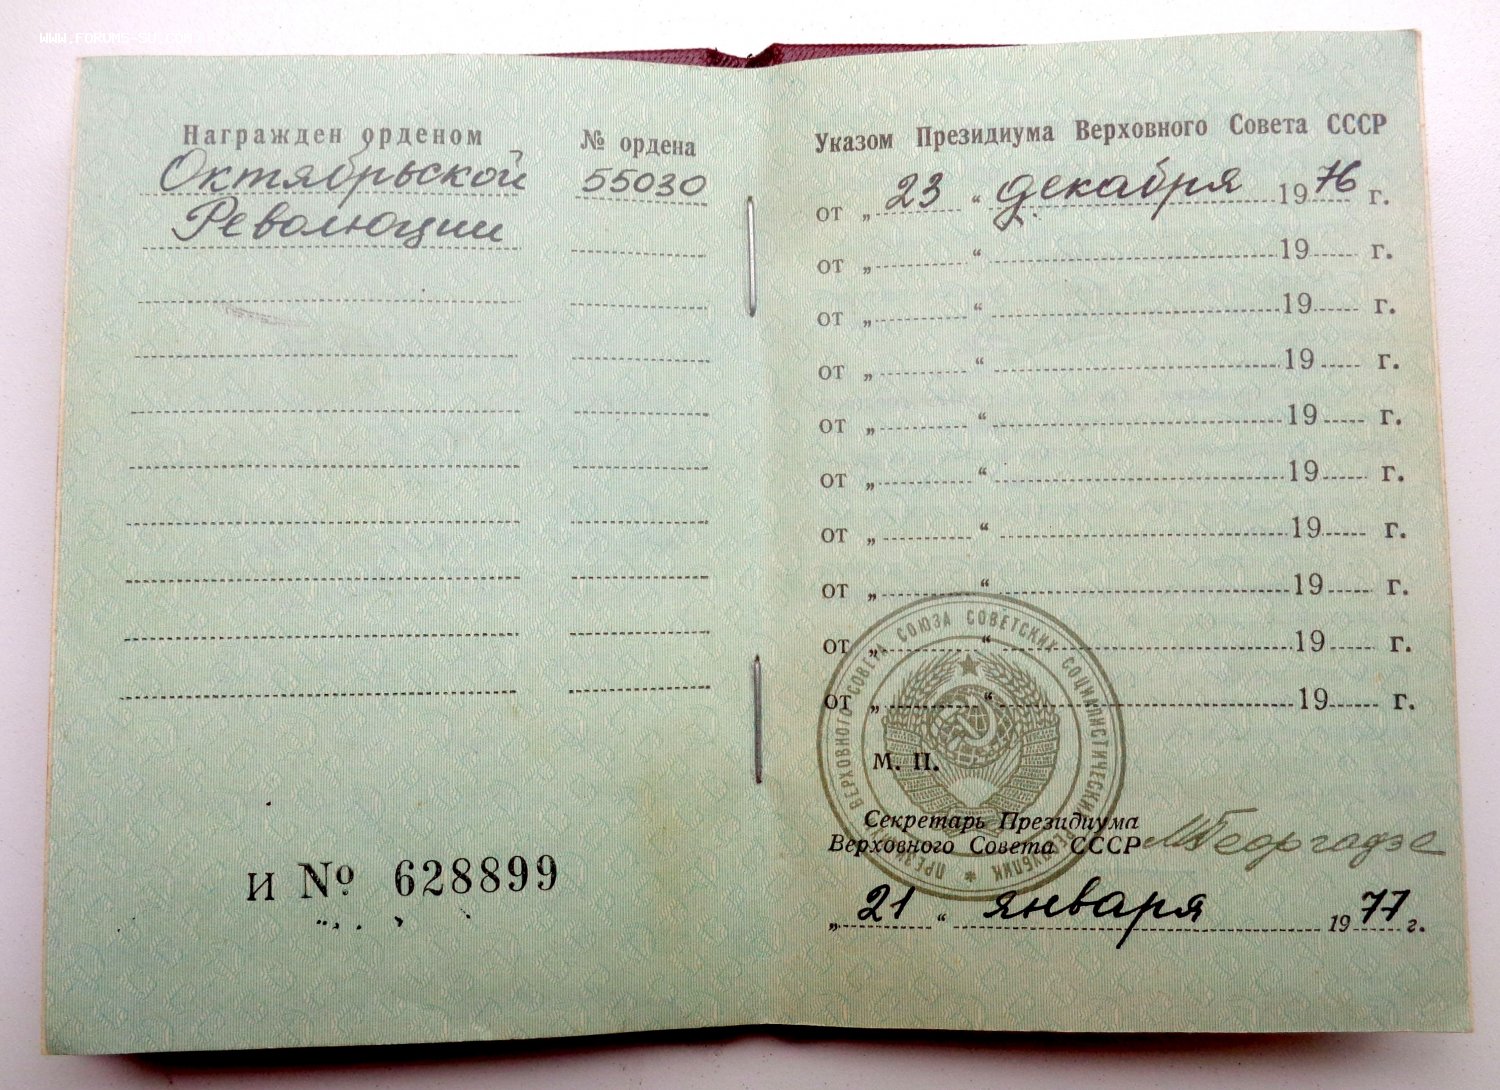 Награжден орденом
Октябрьской
Революции
№ ордена
55030
И № 628899
Указом Президиума Верховного Совета СССР
от „ 23 “ декабря 1976 г.
от „ “ 19 г.
от „ “ 19 г.
от „ “ 19 г.
от „ “ 19 г.
от „ “ 19 г.
от „ “ 19 г.
от „ “ 19 г.
от „ “ 19 г.
от „ “ 19 г.
М. П.
ПРЕЗИДИУМ ВЕРХОВНОГО СОВЕТА СОЮЗА СОВЕТСКИХ СОЦИАЛИСТИЧЕСКИХ РЕСПУБЛИК
Секретарь Президиума
Верховного Совета СССР МГеоргадзе
„ 21 “ января 1977 г.